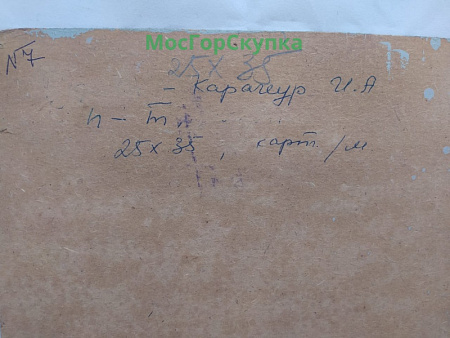 МосГорСкупка
№7
25 х 35
– Карачеур И. А
п – т.
25 х 35, карт. /м